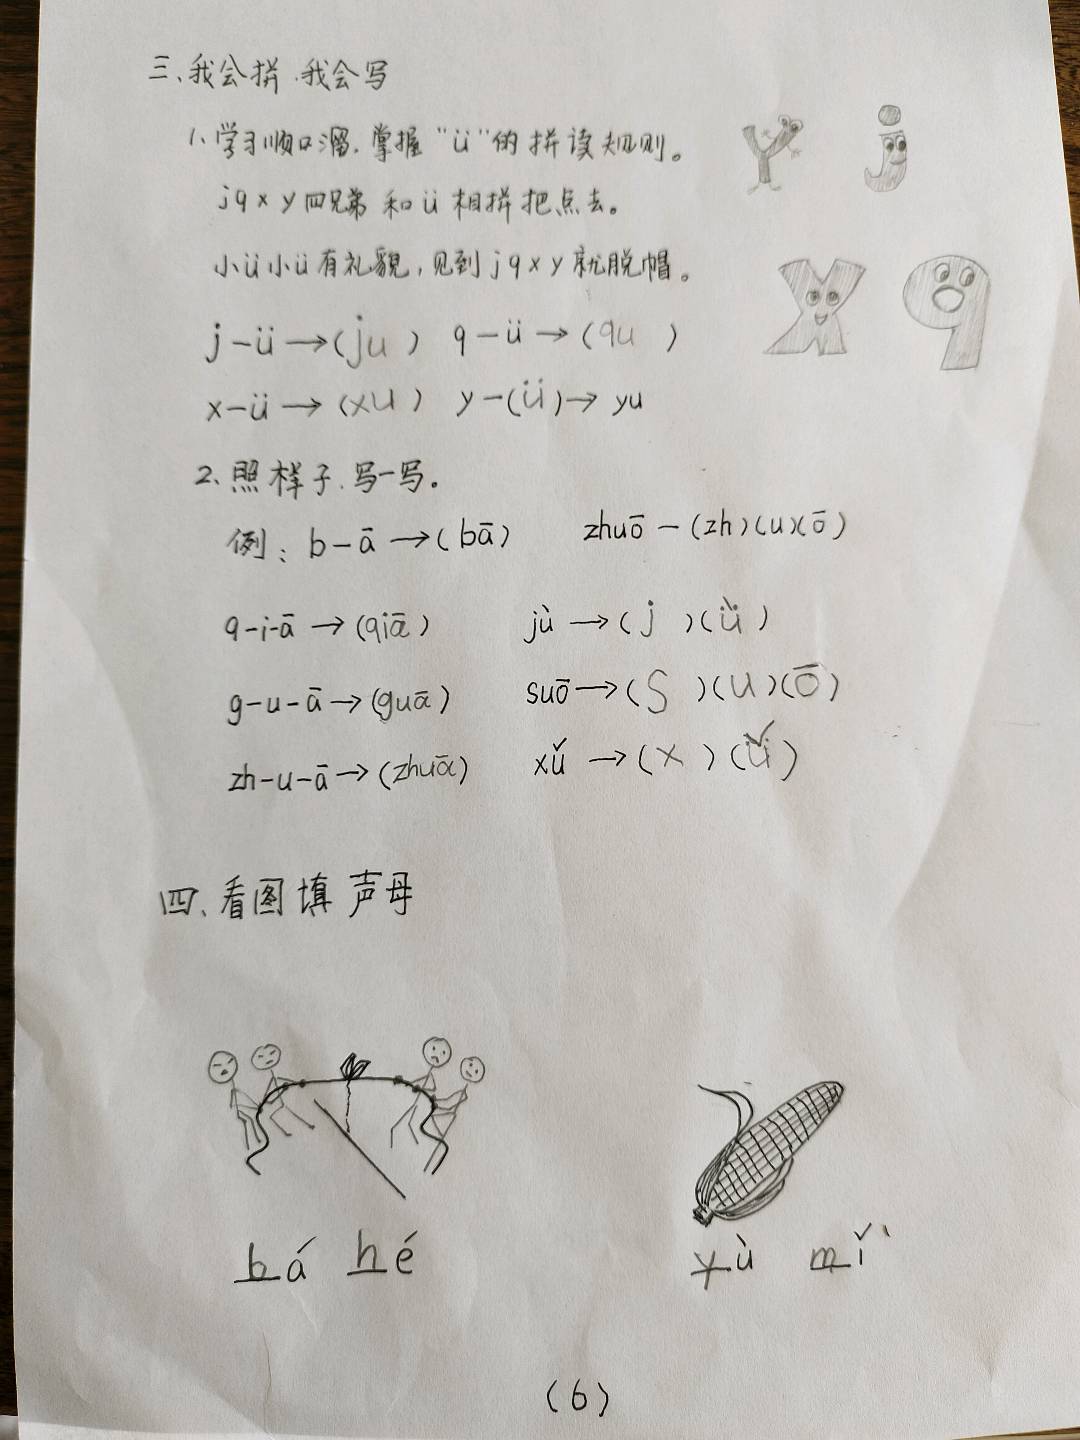 三、我会拼、我会写
1、学习顺口溜,掌握“ü”的拼读规则。
jqxy四兄弟和ü相拼把点去。
小ü小ü有礼貌,见到jqxy就脱帽。
j-ü→(ju) q-ü→(qu)
x-ü→(xu) y-(ü)→yu
2、照样子,写一写。
例:b-ā→(bā) zhuō-(zh)(u)(ō)
q-i-ā→(qiā) jù→(j)(ǜ)
g-u-ā→(guā) suō→(s)(u)(ō)
zh-u-ā→(zhuā) xǔ→(x)(ǚ)
四、看图填声母
bá hé yù mǐ
(6)